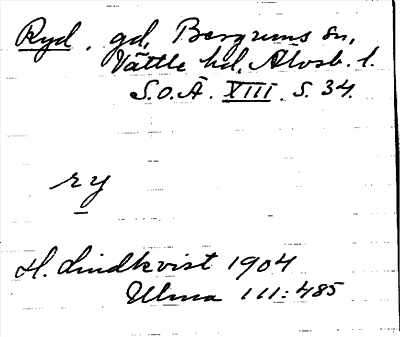 Ryd. gd, Bergums sn,
Vättle hd, Älvsb. l.
S.O.Ä. XIII. S. 34.
ry
H. Lindkvist 1904
Ulma 111:485